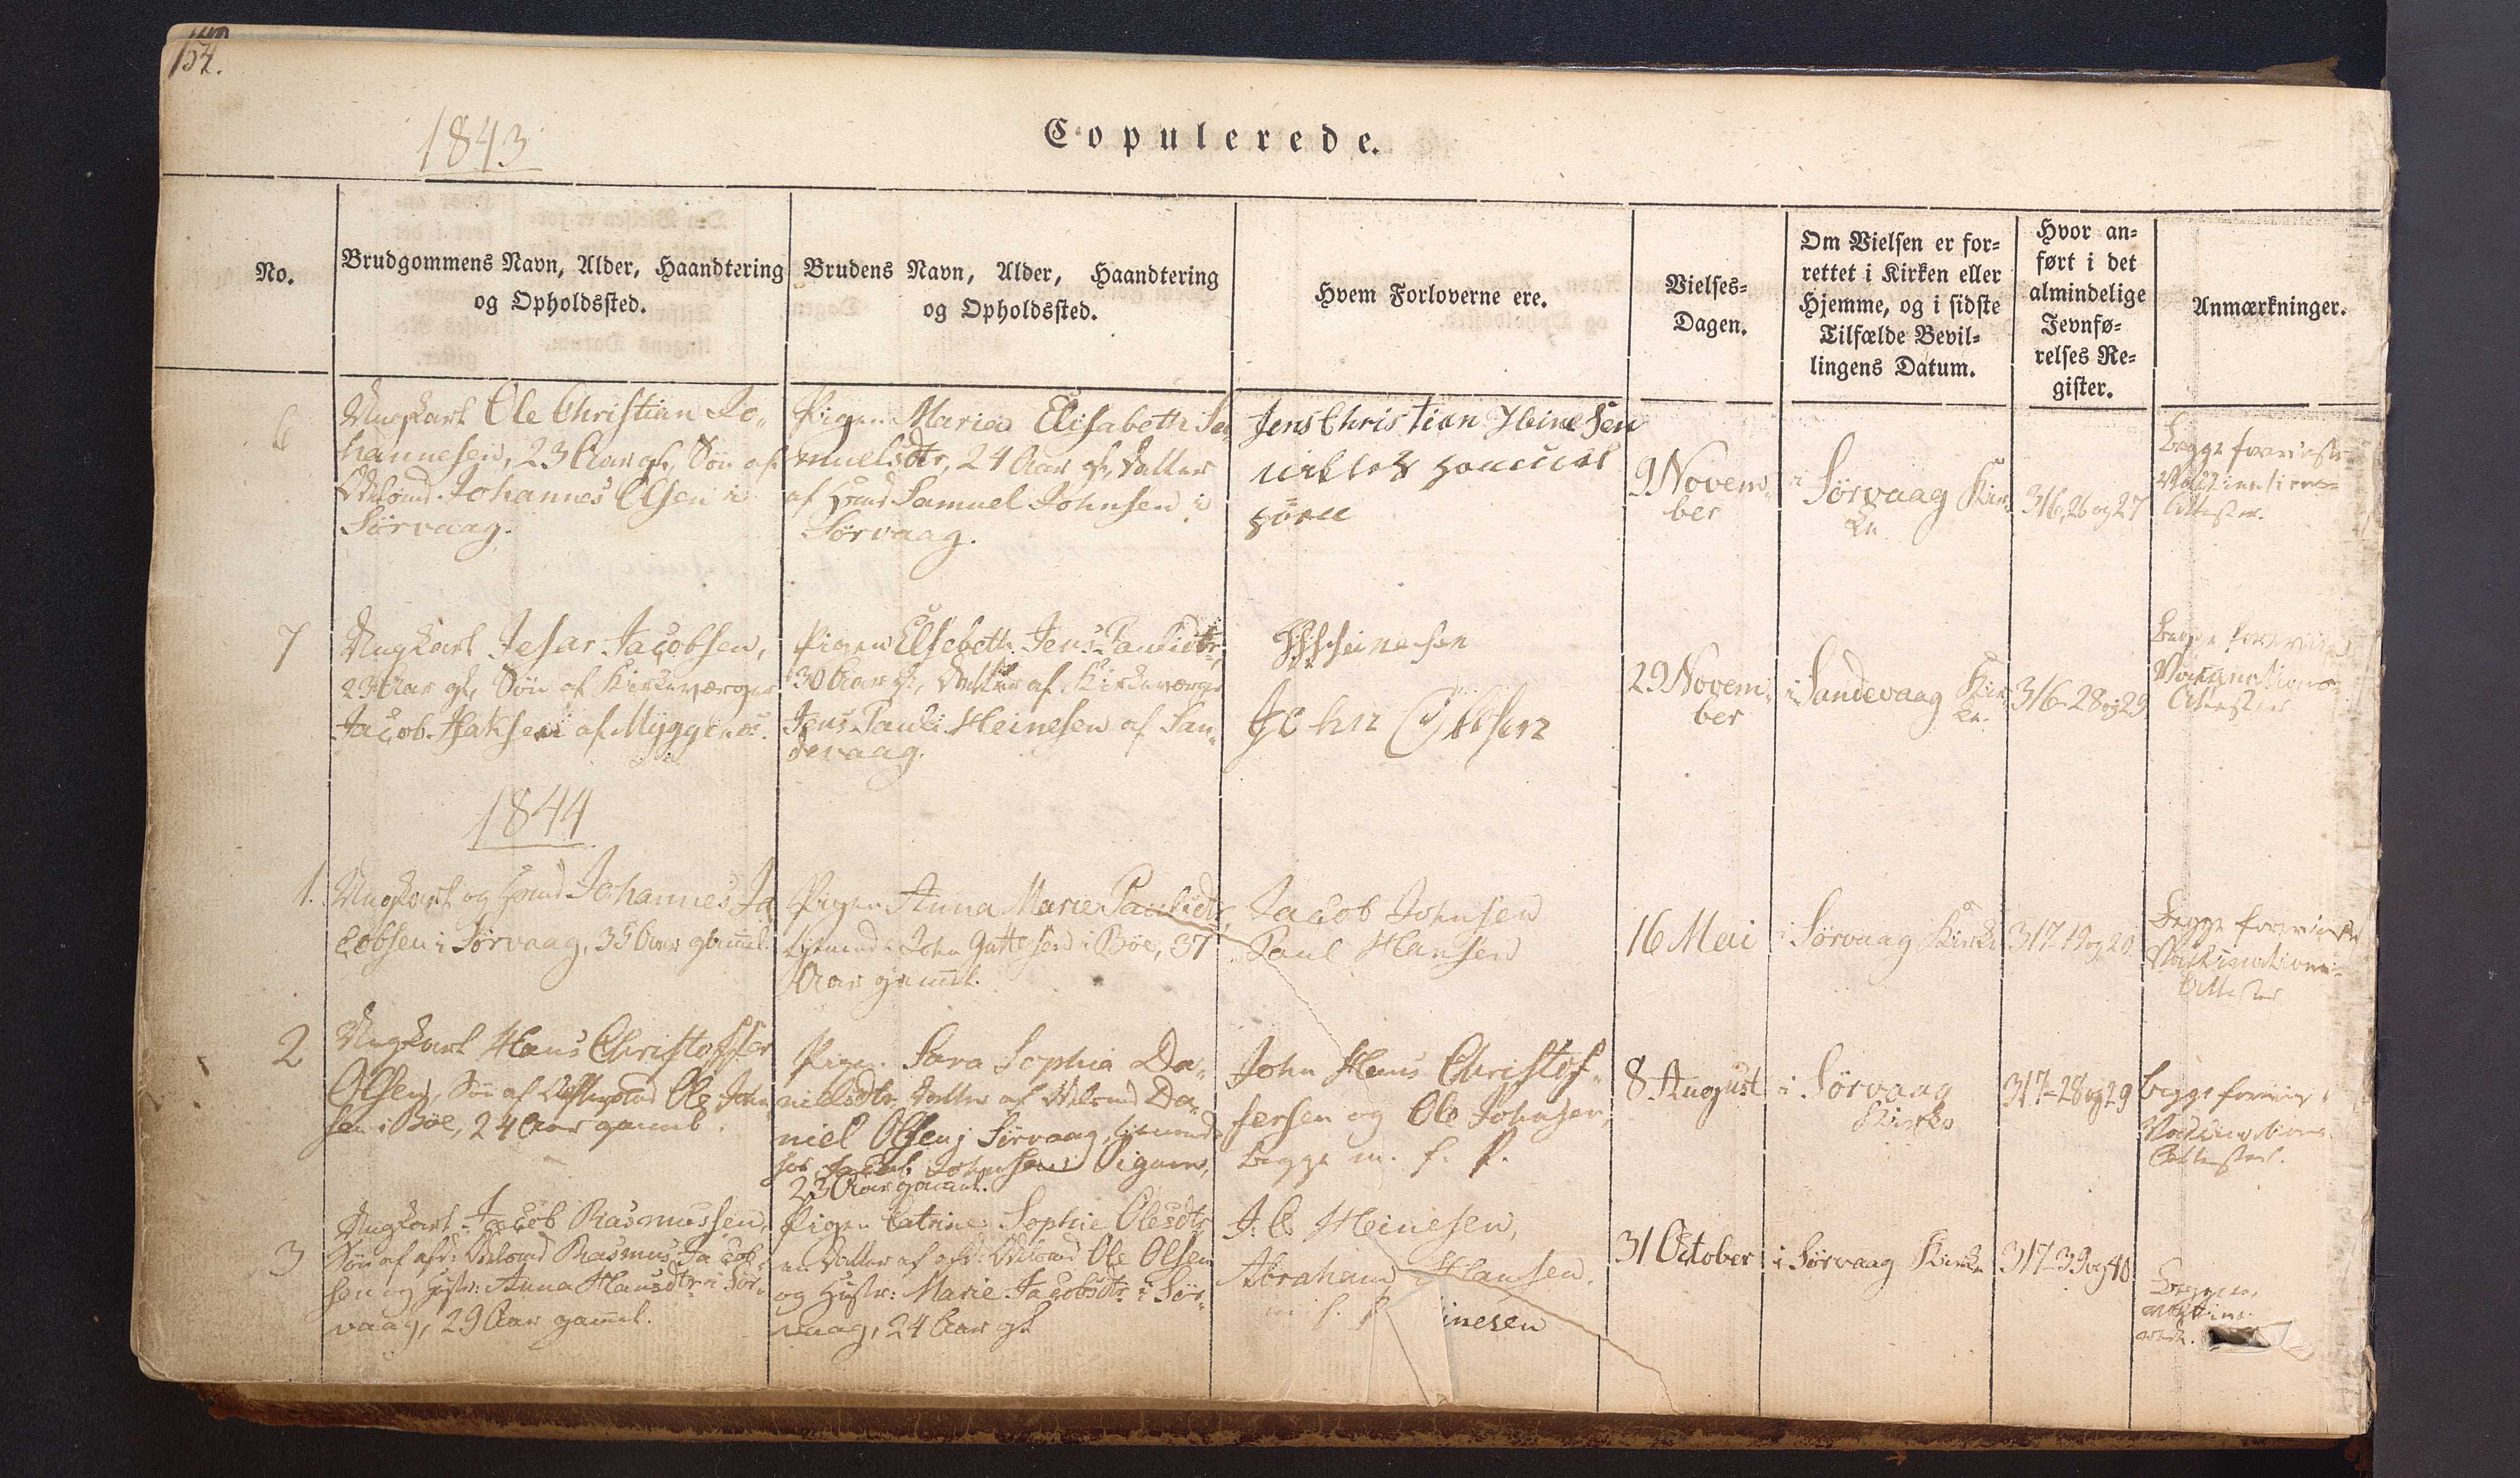 154.
1843
Copulerede.
No.
Brudgommens Navn, Alder, Haandtering
og Opholdssted.
Brudens Navn, Alder, Haandtering
og Opholdssted.
Hvem Forloverne ere.
Vielses-
Dagen.
Om Vielsen er for-
rettet i Kirken eller
Hjemme, og i sidste
Tilfælde Bevil-
lingens Datum.
Hvor an-
ført i det
almindelige
Jevnfø-
relses Re-
gister.
Anmærkninger.
6
Ungkarl Ole Christian Jo-
hannesen, 23 Aar gl, Søn af
Odelsmd. Johannes Olsen i
Sørvaag.
Pigen Maria Elisabeth Sa-
muelsdtr, 24 Aar gl, Datter
af Huusmd Samuel Johnsen i
Sørvaag.
Jens Christian Heinesen
9 Novem-
ber
i Sørvaag Kir-
ke
316, 26 og 27
Begge foreviste
Vaccinations-
Attester.
7
Ungkarl Jesar Jacobsen,
Aar gl, Søn af Kirkeværger
Jacob Isaksen af Myggenæs.
Pigen Elsebeth Jens-Paulidtr,
30 Aar gl, Datter af Kirkeværge
Jens Pauli Heinesen af San-
devaag.
Heinesen
John
29 Novem-
ber
i Sandevaag Kir-
ke.
316-28 og 29
Begge foreviste
Vaccinations-
Attester
1844
1.
Ungkarl og Huusmd Johannes Ja
cobsen i Sørvaag, 35 Aar gammel.
Pigen Anna Marie Paulidtr,
tjenende John Guttesen i Bøe, 37
Aar gammel.
Jacob Johnsen
Paul Hansen
16 Mai
i Sørvaag Kirke
317 19 og 20.
Begge foreviste
Vaccinations-
Attester
2
Ungkarl Hans Christoffer
Olsen, Søn af Ole John
sen i Bøe, 24 Aar gammel.
Pigen Sara Sophia Da-
nielsdtr, Datter af Odelsmd Da-
niel Olsen i Sørvaag, tjenende
hos Jacob Johnsen
23 Aar gammel.
John Hans Christof-
fersen og Ole Johnsen,
begge m. f. P.
8 August
i Sørvaag
Kirke
317-28 og 29
begge
Vaccinations-
Attester.
3
Ungkarl Jacob Rasmussen,
Søn af afd: Odelsmd Rasmus Jacob-
sen og Hustr: Anna Hansdtr i Sør-
vaag, 29 Aar gammel.
Pigen Catrine Sophie Olesdtr
en Datter af afd: Odelsmd Ole Olsen
og Hustr: Marie Jacobsdtr i Sør-
vaag, 24 Aar gl
J. C. Heinesen,
Abraham Hansen.
m. f. P.
inesen
31 October
i Sørvaag Kirke
317-39 og 40
Begge